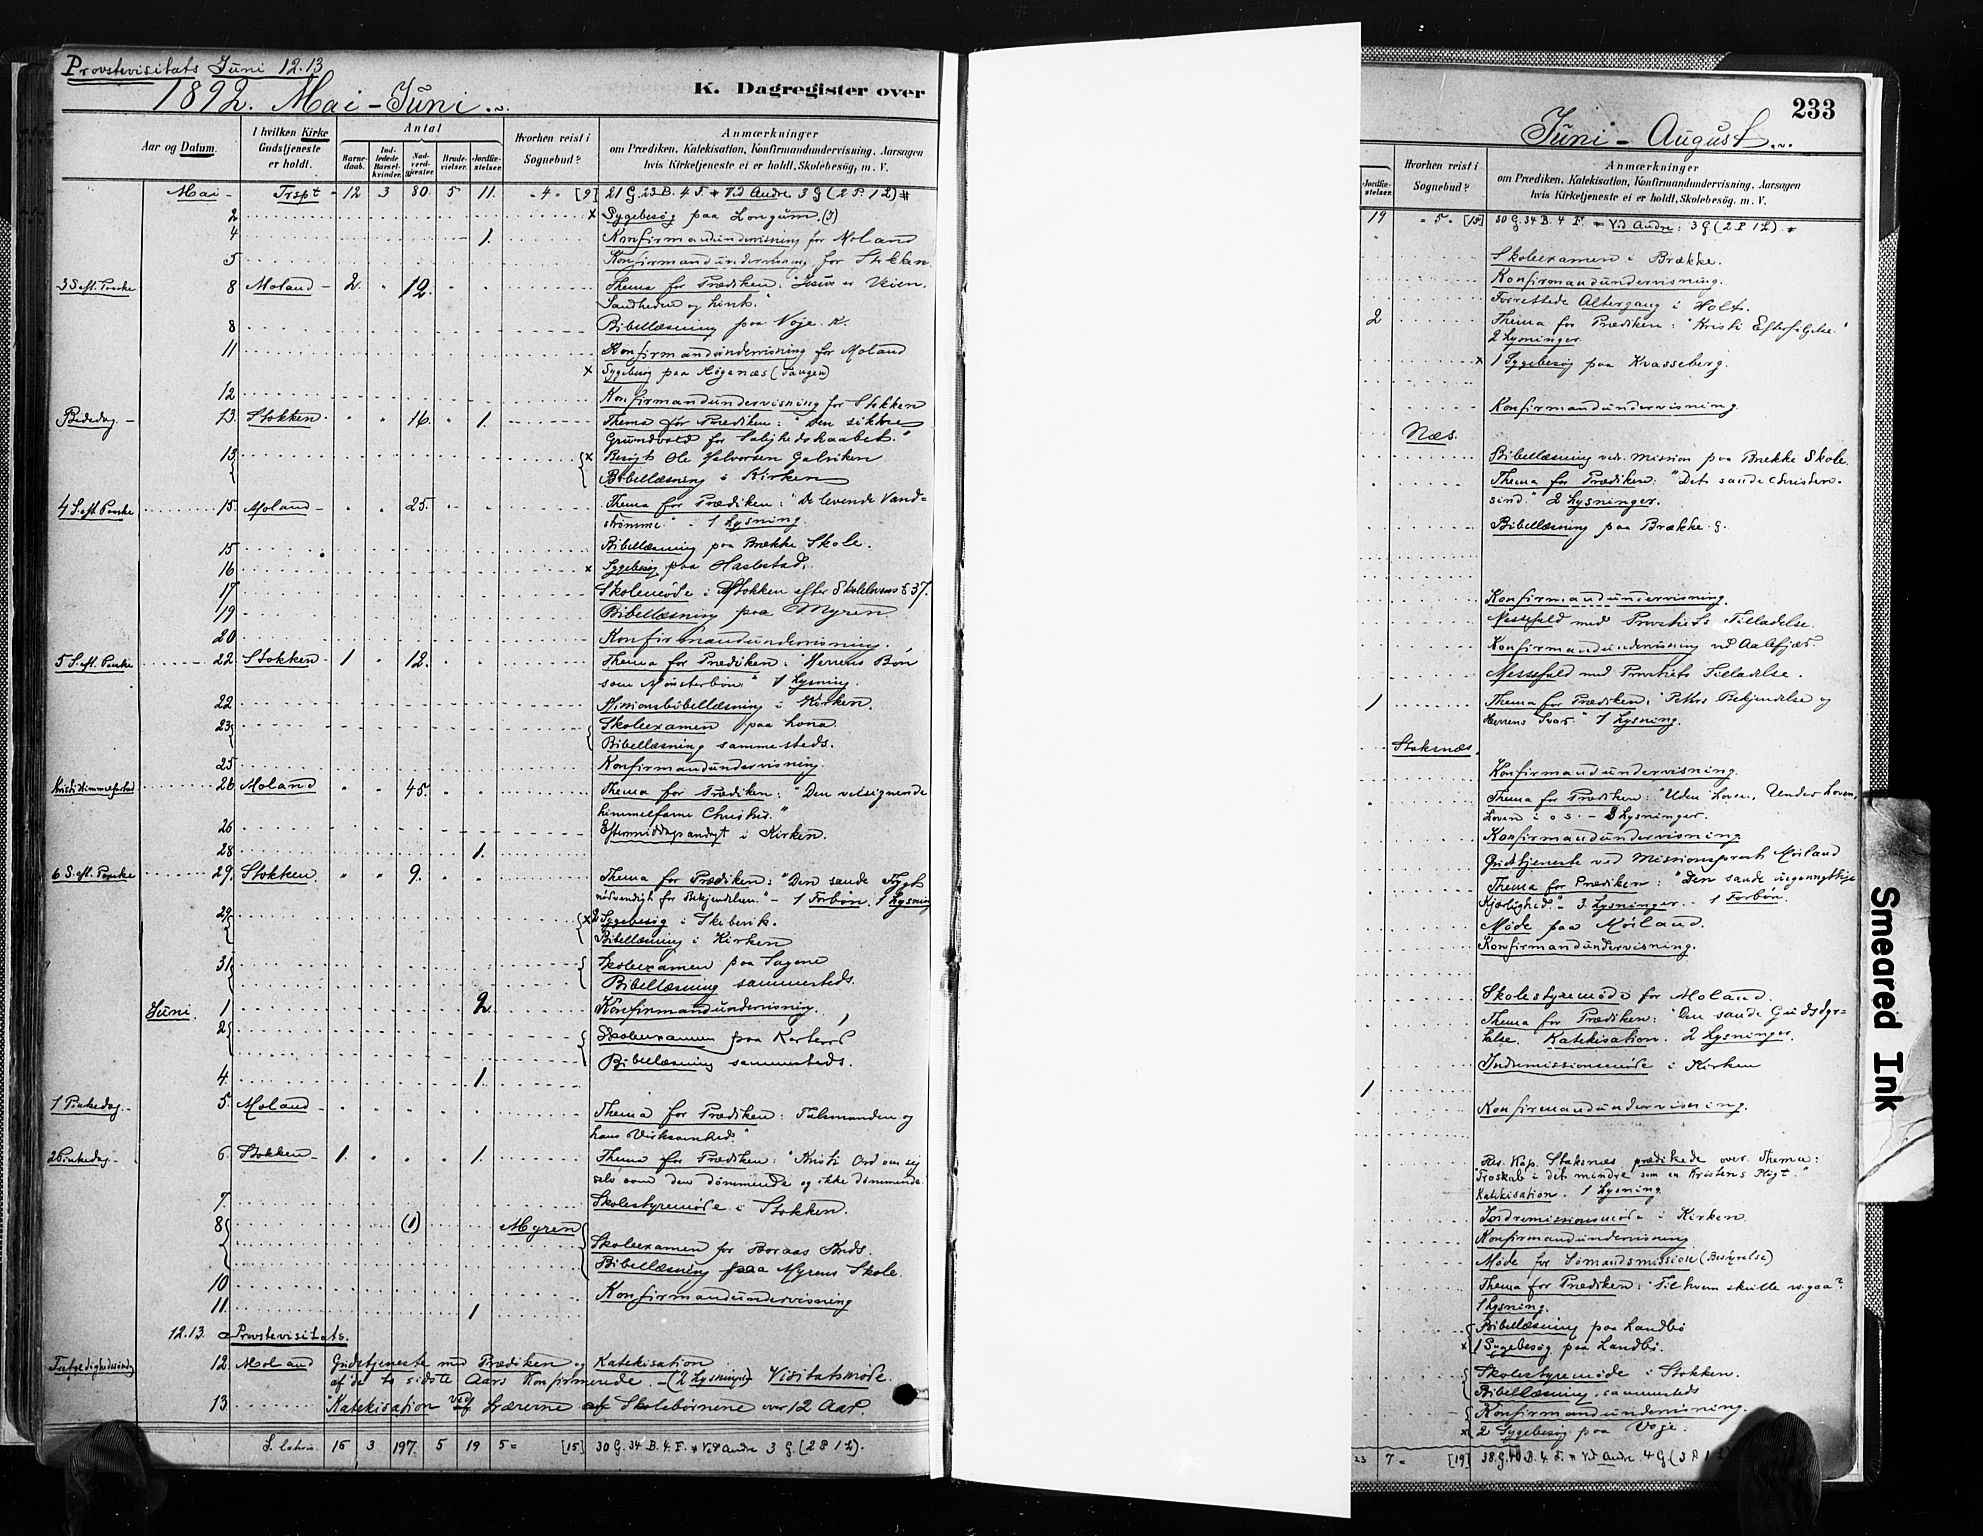 Provstevisitats Juni 12.13
1892. Mai - Juni
K. Dagregister over
Aar og Datum.
I hvilken Kirke Gudstjeneste er holdt.
Antal
Barne-daab.
Ind-ledede Barsel-kvinder.
Nad-verd-gjester.
Brude-vielser.
Jordfæ-stelser.
Hvorhen reist i Sognebud?
Anmærkninger
om Prædiken, Katekisation, Konfirmandundervisning, Aarsagen
hvis Kirketjeneste ei er holdt, Skolebesøg, m. V.
Mai - Trspt - 12 3 80. 5 11. - 4 - [9] 21 G. 23 B. 4 F. * Vid Andre 3 G (2 P. 1 L) #
2 x Sygebesøg paa Longum. (J)
4 1. Konfirmandundervisning for Moland
5 Konfirmandundervisning for Stokken
3 S. eft. Paaske 8 Moland - 2. " 12. Thema for Prædiken: "Jesus er Veien,
Sandheden og Livet."
8 Bibellæsning paa Voje. K.
11 Konfirmandundervisning for Moland
x Sygebesøg paa Høgenæs (Tangen)
12 Konfirmandundervisning for Stokken
Bededag - 13. Stokken. " " 16. " 1. Thema for Prædiken: "Den sikkre
Grundvold for Salighedshaabet."
13. x Besøgt Ole Halvorsen
Bibellæsning i Kirken
4 S. eft. Paaske 15. Moland - " " 25. Thema for Prædiken: "De levende Vand-
strømme" - 1 Lysning.
15 Bibellæsning paa Brække Skole.
16 x Sygebesøg paa Hasbestad.
17 Skolemøde i Stokken efter Skolelovens § 37.
19 Bibellæsning paa Myren.
20 Konfirmandundervisning.
5 S. eft. Paaske 22. Stokken - 1 " 12. Thema for Prædiken: "Herrens Bøn
som Mønsterbøn." 1 Lysning.
22 Missionsbibellæsning i Kirken.
23 Skoleexamen paa Lona.
Bibellæsning sammesteds.
25 Konfirmandundervisning.
Kristi Himmelfartsd 26 Moland " " 45. Thema for Prædiken: "Den velsignende
himmelfarne Christus."
26 Eftermiddagsandagt i Kirken.
28 1.
6 S. eft. Paaske 29. Stokken. " " 9. Thema for Prædiken: "Den sande Frygt
nødvendigt for Bekjendelsen" - 1 Forbøn. 1 Lysning
29 x 2 Sygebesøg i Skibevik.
Bibellæsning i Kirken
31 Skoleexamen paa Sagene
Bibellæsning sammesteds.
Juni. 1 2. Konfirmandundervisning.
2 Skoleexamen paa
Bibellæsning sammesteds.
4. 1.
1 Pinkedag - 5. Moland - Thema for Prædiken: Talsmanden og
hans Virksomhed."
2 Pinkedag - 6. Stokken - 1. 1. Thema for Prædiken: "Kristi Ord om sig
selv som den dømmende og ikke dømmende.
7. Skolestyremøde i Stokken.
8 (1) Myren
Skoleexamen for Boraas Krds.
Bibellæsning paa Myrens Skole.
10 Konfirmandundervisning
11. 1
12.13. Provstevisitats.
Trefoldighedssøndag 12. Moland Gudstjeneste med Prædiken og Katekisation
af de to sidste Aars Konfirmerede. - (2 Lysninger) Visitatsmøde.
13. Katekisation ved Lærerne af Skolebørnene over 12 Aar.
S. latus. 15 3 197. 5 19 5 - [15] 30 G. 34 B. 4. F. * Vid Andre 3 G. (2 P 1 L).
233
Juni - August
Jordfæ-stelser.
Hvorhen reist i Sognebud?
Anmærkninger
om Prædiken, Katekisation, Konfirmandundervisning, Aarsagen
hvis Kirketjeneste ei er holdt, Skolebesøg, m. V.
19 - 5 - [15] 30 G. 34 B. 4 F. * Vid Andre: 3 G (2 P 1 L). *
Skoleexamen i Brække.
Konfirmandundervisning.
Forrettede Altergang i Holt.
2 Thema for Prædiken: "Kristi Efterfølgelse."
2 Lysninger
x 1 Sygebesøg paa Kvasseberg.
Konfirmandundervisning
Næs.
Bibellæsning ved. Mission paa Brække Skole.
Thema for Prædiken: "Det sande Christen-
sind." 2 Lysninger.
Bibellæsning paa Brække. G.
Konfirmandundervisning.
Messefald med Provstiets Tilladelse.
Konfirmandundervisning ved Aalefjær.
Messefald med Provstiets Tilladelse.
1 Thema for Prædiken: "Peters Bekjendelse og
Herrens Svar" 1 Lysning.
Staksnæs.
Konfirmandundervisning.
Thema for Prædiken: "Uden Loven, Under Loven,
Loven i os. - 3 Lysninger.
Konfirmandundervisning
Gudstjeneste ved Missionsprest Møiland
Thema for Prædiken: "Den sande uegennyttige
Kjærlighed." - 3. Lysninger. - 1 Forbøn.
Møde paa Møiland.
Konfirmandundervisning.
Skolestyremøde for Moland.
Thema for Prædiken: "Den sande Gudsdyr-
kelse. Katekisation. 2 Lysninger.
Indremissionsmøde i Kirken
1
Konfirmandundervisning.
Res. Kap. Staksnæs prædikede over Thema:
Troskab i det mindre som en Kristens Pligt."
Katekisation. 1 Lysning
Indremissionsmøde i Kirken
Konfirmandundervisning
Møde for Sømandsmission (Bestyrelse)
Thema for Prædiken: Til hvem skulle vi gaa?
1 Lysning.
Bibellæsning paa Landbø
x 1 Sygebesøg paa Landbø.
Skolestyremøde i Stokken.
Bibellæsning sammesteds
Konfirmandundervisning.
x 2 Sygebesøg paa Voje.
23 7 - [19] 38. G. 40 B. 4 F. * Vid Andre. 4 G (3 P. 1 L)
Smeared Ink